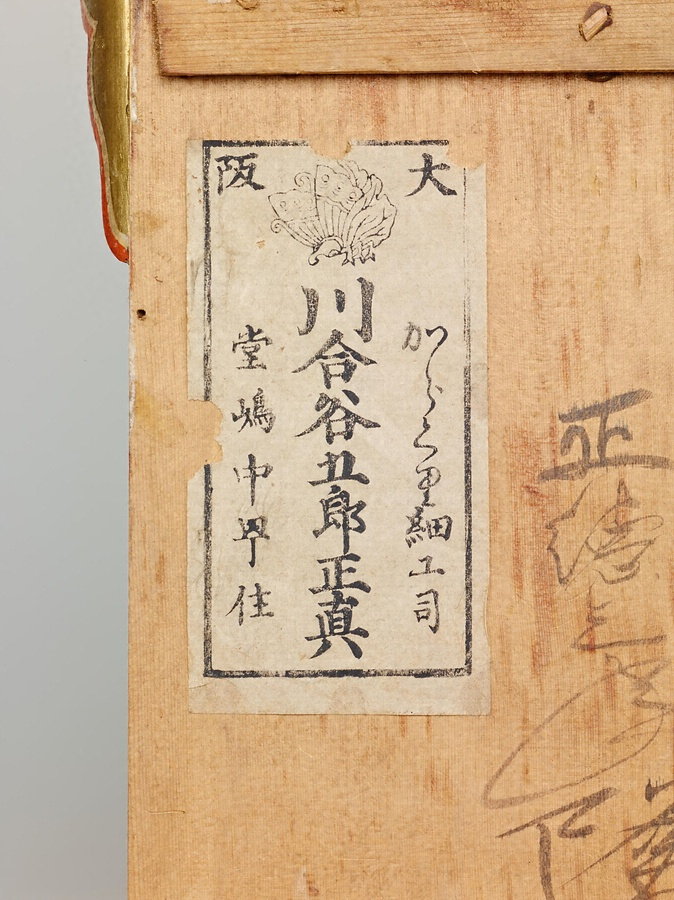 大阪
からくり細工司
川合谷五郎正真
堂嶋中甼住
正徳三